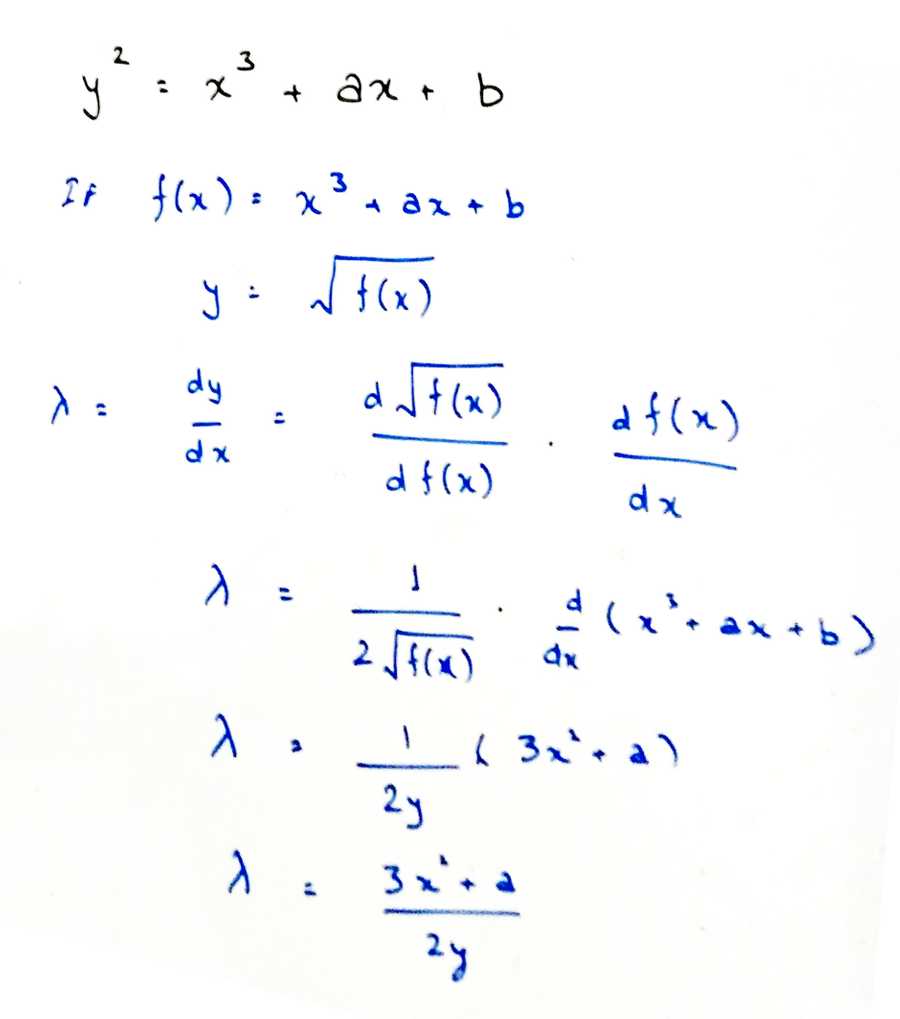 y² = x³ + ax + b
If f(x) = x³ + ax + b
y = √f(x)
λ = dy/dx = d√f(x)/df(x) · df(x)/dx
λ = 1/(2√f(x)) · d/dx (x³ + ax + b)
λ = 1/2y (3x² + a)
λ = (3x² + a)/2y